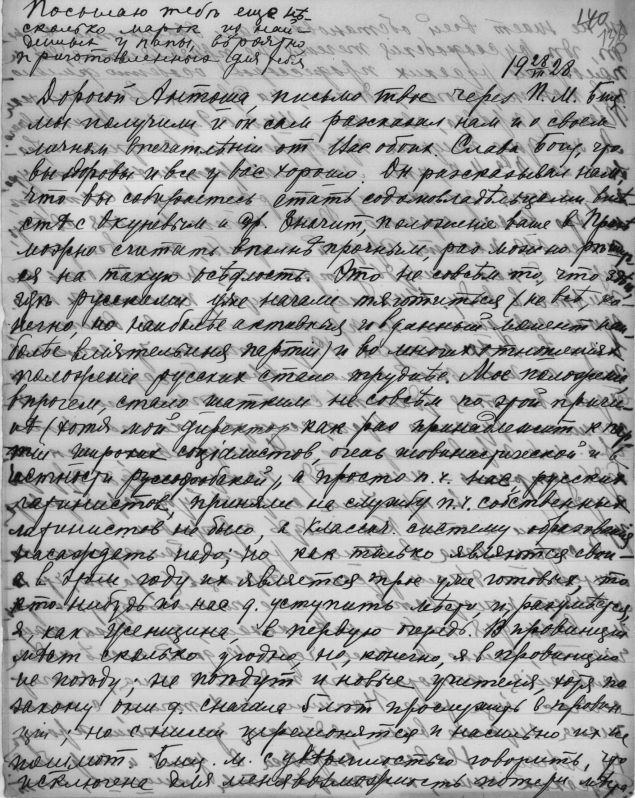 Посылаю тебѣ еще нѣ-
сколько марок из най-
денных у папы, вѣроятно
приготовленных для тебя
140
19 28/III 28.
Дорогой Антоша, письмо твое через П. М. Биц.
мы получили и он сам рассказал нам и о своем
личном впечатлѣнии от Вас обоих. Слава Богу, что
вы здоровы и все у вас хорошо. Он рассказывал нам,
что вы собираетесь стать содомовладѣльцами вмѣ-
стѣ с Окуневым и др. Значит, положение ваше в Прагѣ
можно считать вполнѣ прочным, раз можно
ся на такую осѣдлость. Это не совсѣм то, что здѣсь,
гдѣ русскими уже начали тяготиться (не всѣ, ко-
нечно, но наиболѣе активныя и в данный момент наи-
болѣе влиятельныя партии) и во многих отношениях
положение русских стало труднѣе. Мое положение
впрочем, стало шатким не совсѣм по этой причи-
нѣ (хотя мой директор как раз принадлежит к пар-
тии широких социалистов, очень шовинистической и в
частности русофобской), а просто п. ч. нас русских
латинистов, приняли на службу п. ч. собственных
латинистов не было, а классич. систему образования
насаждать надо; но как только являются свои
а в этом году их является трое уже готовых, то
кто нибудь из нас д. уступить мѣсто и, разумѣется,
я как женщина в первую очередь. В провинции
мѣст сколько угодно, но, конечно, я в провинцию
не поѣду; не поѣдут и новые учителя, хотя по
закону они д. сначала 5 лѣт прослужить в провин-
ции; но с ними церемонятся и насильно их не
пошлют. Биц. м. с увѣренностью говорить, что
исключена для меня возможность потери мѣста.